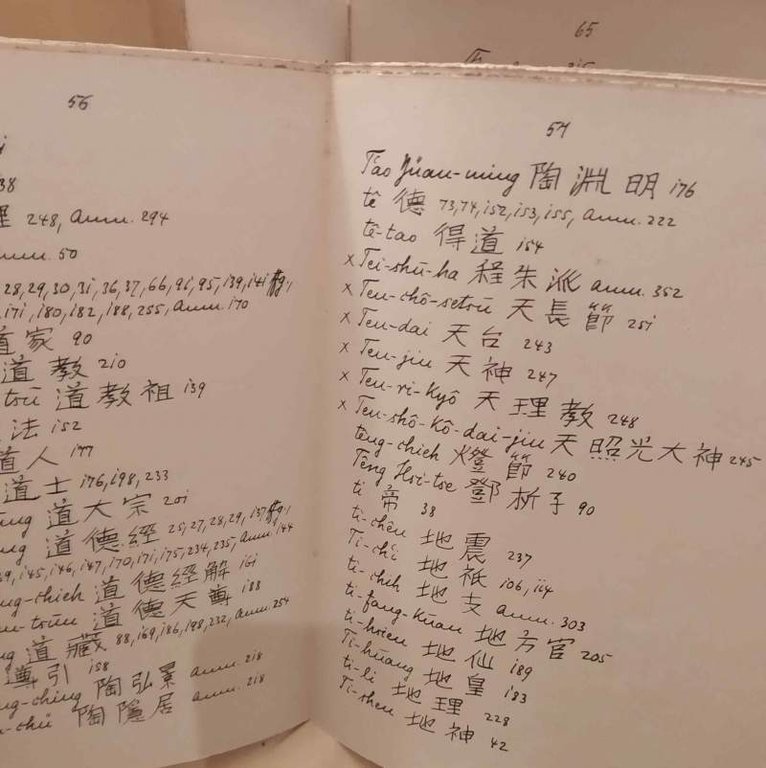 65
56
38
理 248, Anm. 294
Anm. 50
28, 29, 30, 31, 36, 37, 66, 91, 95, 139, 141 ffg.,
171, 180, 182, 188, 255, Anm. 170
道家 90
道教 210
道教祖 139
法 152
道人 177
道士 176, 198, 233
道大宗 201
道德經 25, 27, 28, 29, 137 ffg.,
145, 146, 147, 170, 171, 175, 234, 235, Anm. 144
道德經解 161
道德天尊 188
道藏 88, 169, 186, 198, 232, Anm. 254
導引 158
陶弘景 Anm. 218
陶隱居 Anm. 218
57
T'ao Yüan-ming 陶淵明 176
tê 德 73, 74, 152, 153, 155, Anm. 222
tê-tao 得道 154
x Tei-shū-ha 程朱派 Anm. 352
x Ten-chō-setsu 天長節 251
x Ten-dai 天台 243
x Ten-jin 天神 247
x Ten-ri-kyō 天理教 248
x Ten-shō-kō-dai-jin 天照光大神 245
têng-chieh 燈節 240
Têng Hsi-tse 鄧析子 90
ti 帝 38
ti-chên 地震 237
Ti-ch'i 地祇 106, 114
ti-chih 地支 Anm. 303
ti-fang-kuan 地方官 205
ti-hsien 地仙 189
Ti-huang 地皇 183
ti-li 地理 228
Ti-shen 地神 42